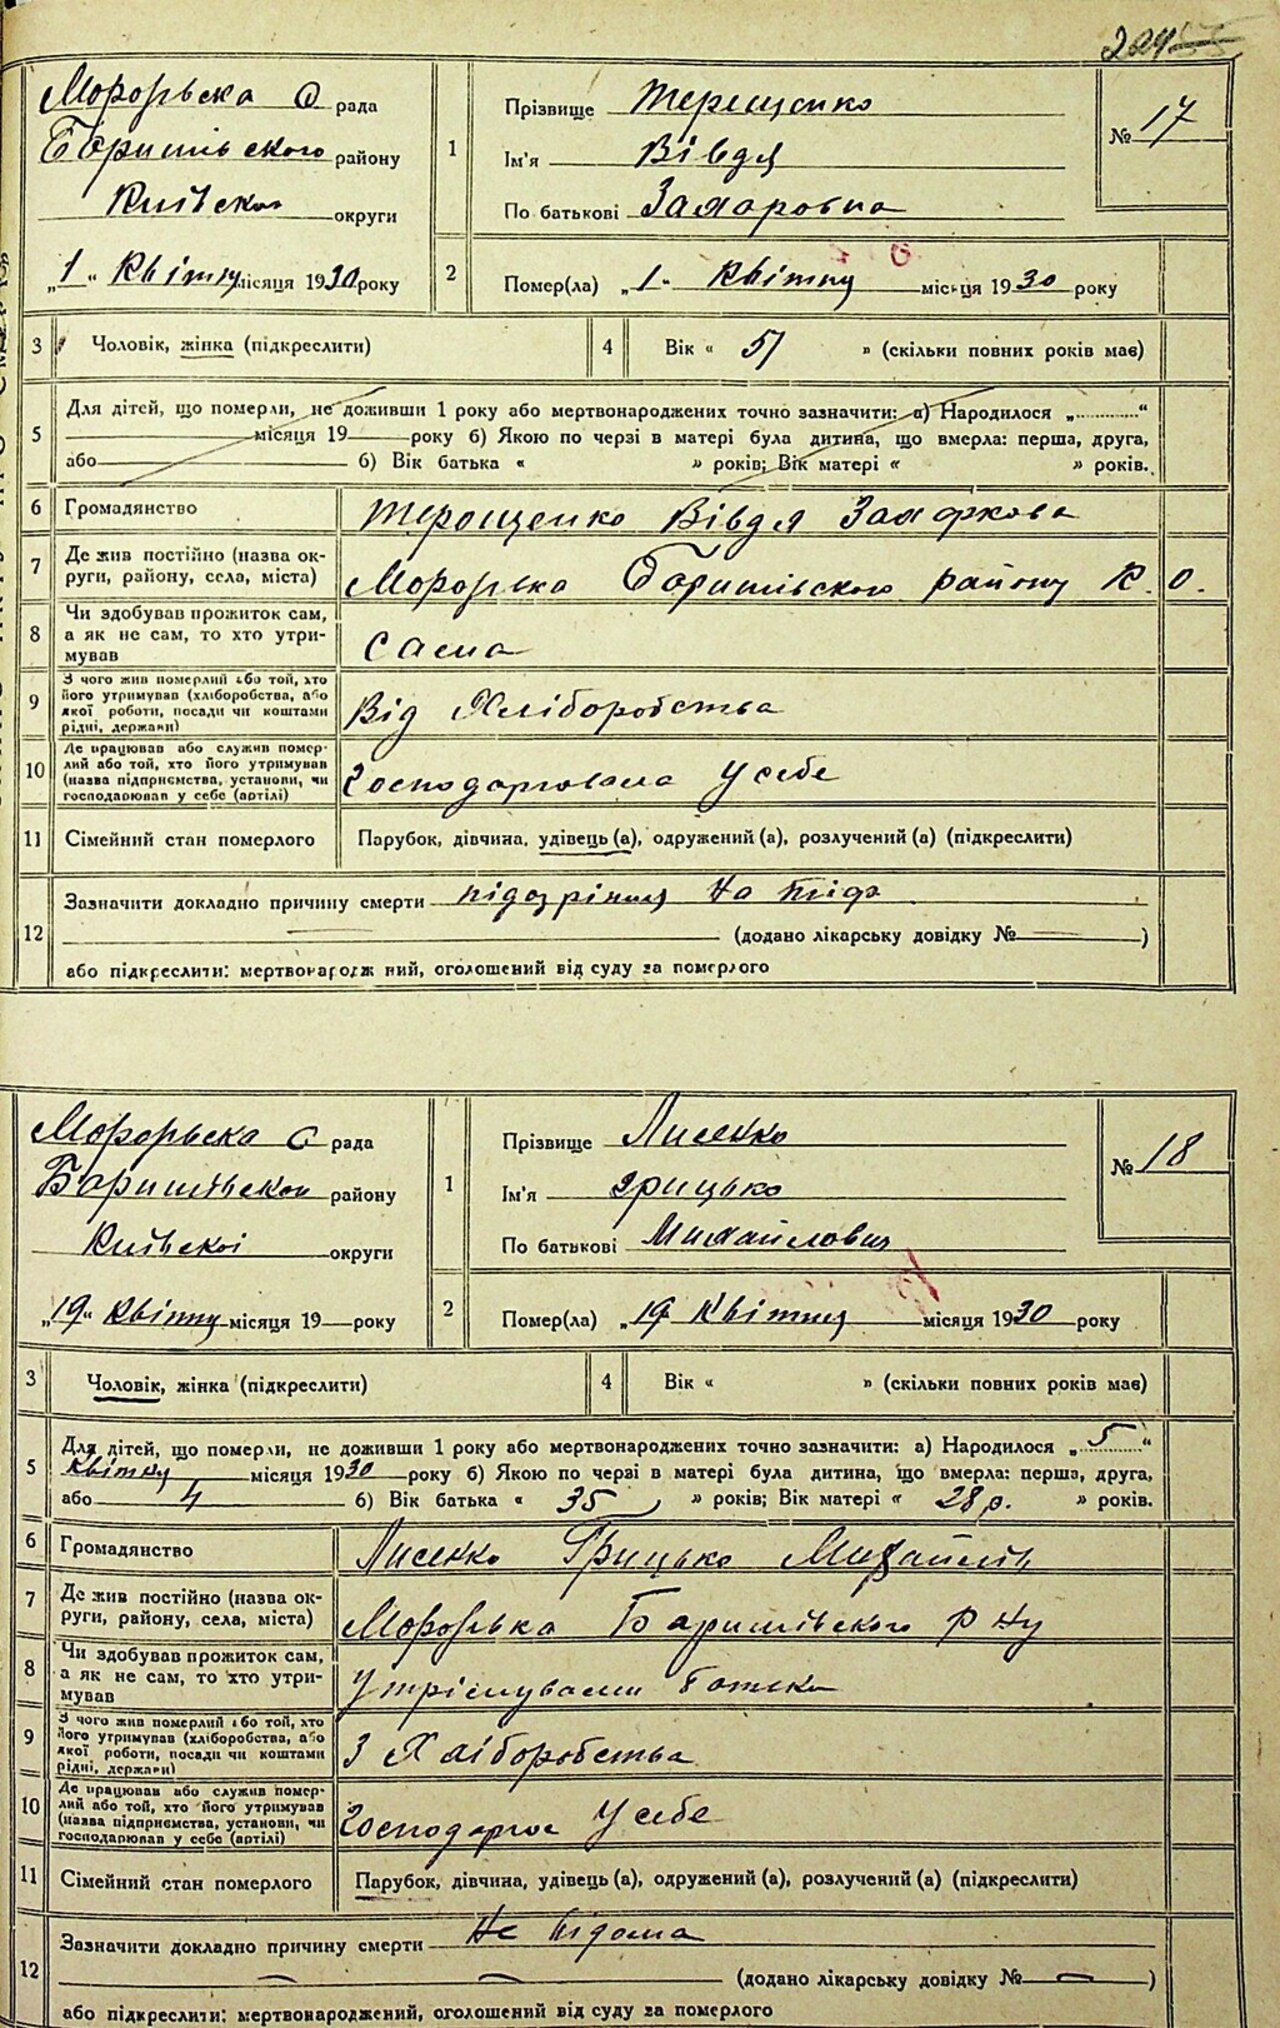 224
Морозівська С рада
Баришівського району
Київської округи
№ 17
1 Прізвище Терещенко
Ім'я Вівдя
По батькові Захаровна
„1“ Квітня місяця 1930 року
2 Помер(ла) „1“ Квітня місяця 1930 року
3 Чоловік, жінка (підкреслити)
4 Вік « 51 » (скільки повних років має)
5 Для дітей, що померли, не доживши 1 року або мертвонароджених точно зазначити: а) Народилося „..........“
місяця 19 року б) Якою по черзі в матері була дитина, що вмерла: перша, друга,
або б) Вік батька « » років; Вік матері « » років.
6 Громадянство Терещенко Вівдя Захаркова
7 Де жив постійно (назва округи, району, села, міста) Морозівка Баришівського району К. О.
8 Чи здобував прожиток сам, а як не сам, то хто утримував сама
9 З чого жив померлий або той, хто його утримував (хліборобства, або якої роботи, посади чи коштами рідні, держави) Від Хліборобства
10 Де працював або служив померлий або той, хто його утримував (назва підприємства, установи, чи господарював у себе (артілі) Господарювала у себе
11 Сімейний стан померлого Парубок, дівчина, удівець (а), одружений (а), розлучений (а) (підкреслити)
12 Зазначити докладно причину смерти підозріння на тіф
(додано лікарську довідку № )
або підкреслити: мертвонароджений, оголошений від суду за померлого
Морозівська С рада
Баришівської району
Київскої округи
№ 18
1 Прізвище Лисенко
Ім'я Грицько
По батькові Михайлович
„19“ Квітня місяця 19 року
2 Помер(ла) „19 Квітня місяця 1930 року
3 Чоловік, жінка (підкреслити)
4 Вік « » (скільки повних років має)
5 Для дітей, що померли, не доживши 1 року або мертвонароджених точно зазначити: а) Народилося „ 5 “
Квітня місяця 1930 року б) Якою по черзі в матері була дитина, що вмерла: перша, друга,
або 4 б) Вік батька « 35 » років; Вік матері « 28 р. » років.
6 Громадянство Лисенко Грицько Михайлів
7 Де жив постійно (назва округи, району, села, міста) Морозівка Баришівського р ну
8 Чи здобував прожиток сам, а як не сам, то хто утримував Утрімували батьки
9 З чого жив померлий або той, хто його утримував (хліборобства, або якої роботи, посади чи коштами рідні, держави) З Хліборобства
10 Де працював або служив померлий або той, хто його утримував (назва підприємства, установи, чи господарював у себе (артілі) у себе
11 Сімейний стан померлого Парубок, дівчина, удівець (а), одружений (а), розлучений (а) (підкреслити)
12 Зазначити докладно причину смерти Не відома
(додано лікарську довідку № )
або підкреслити: мертвонароджений, оголошений від суду за померлого